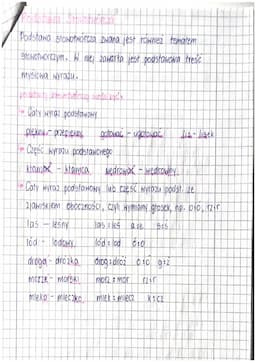 Podstawa słowotwórcza
Podstawa słowotwórcza zwana jest również tematem
słowotwórczym. W niej zawarta jest podstawowa treść
myślowa wyrazu.
podstawą słowotwórczą może być:
Cały wyraz podstawowy
piękny - przepiękny gotować - ugotować
Część wyrazu podstawowego
kłamać - kłamca wędrować - wędrowny
Cały wyraz podstawowy lub część wyrazu podst. ze
zjawiskiem oboczności, czyli wymiany głosek, np. o:ó, rz:r
las - leśny las : leś a:e s:ś
lód - lodowy lód : lod ó:o
droga - dróżka drog : dróż o:ó g:ż
morze - morski morz : mor rz:r
mleko - mleczko mlek : mlecz k:cz